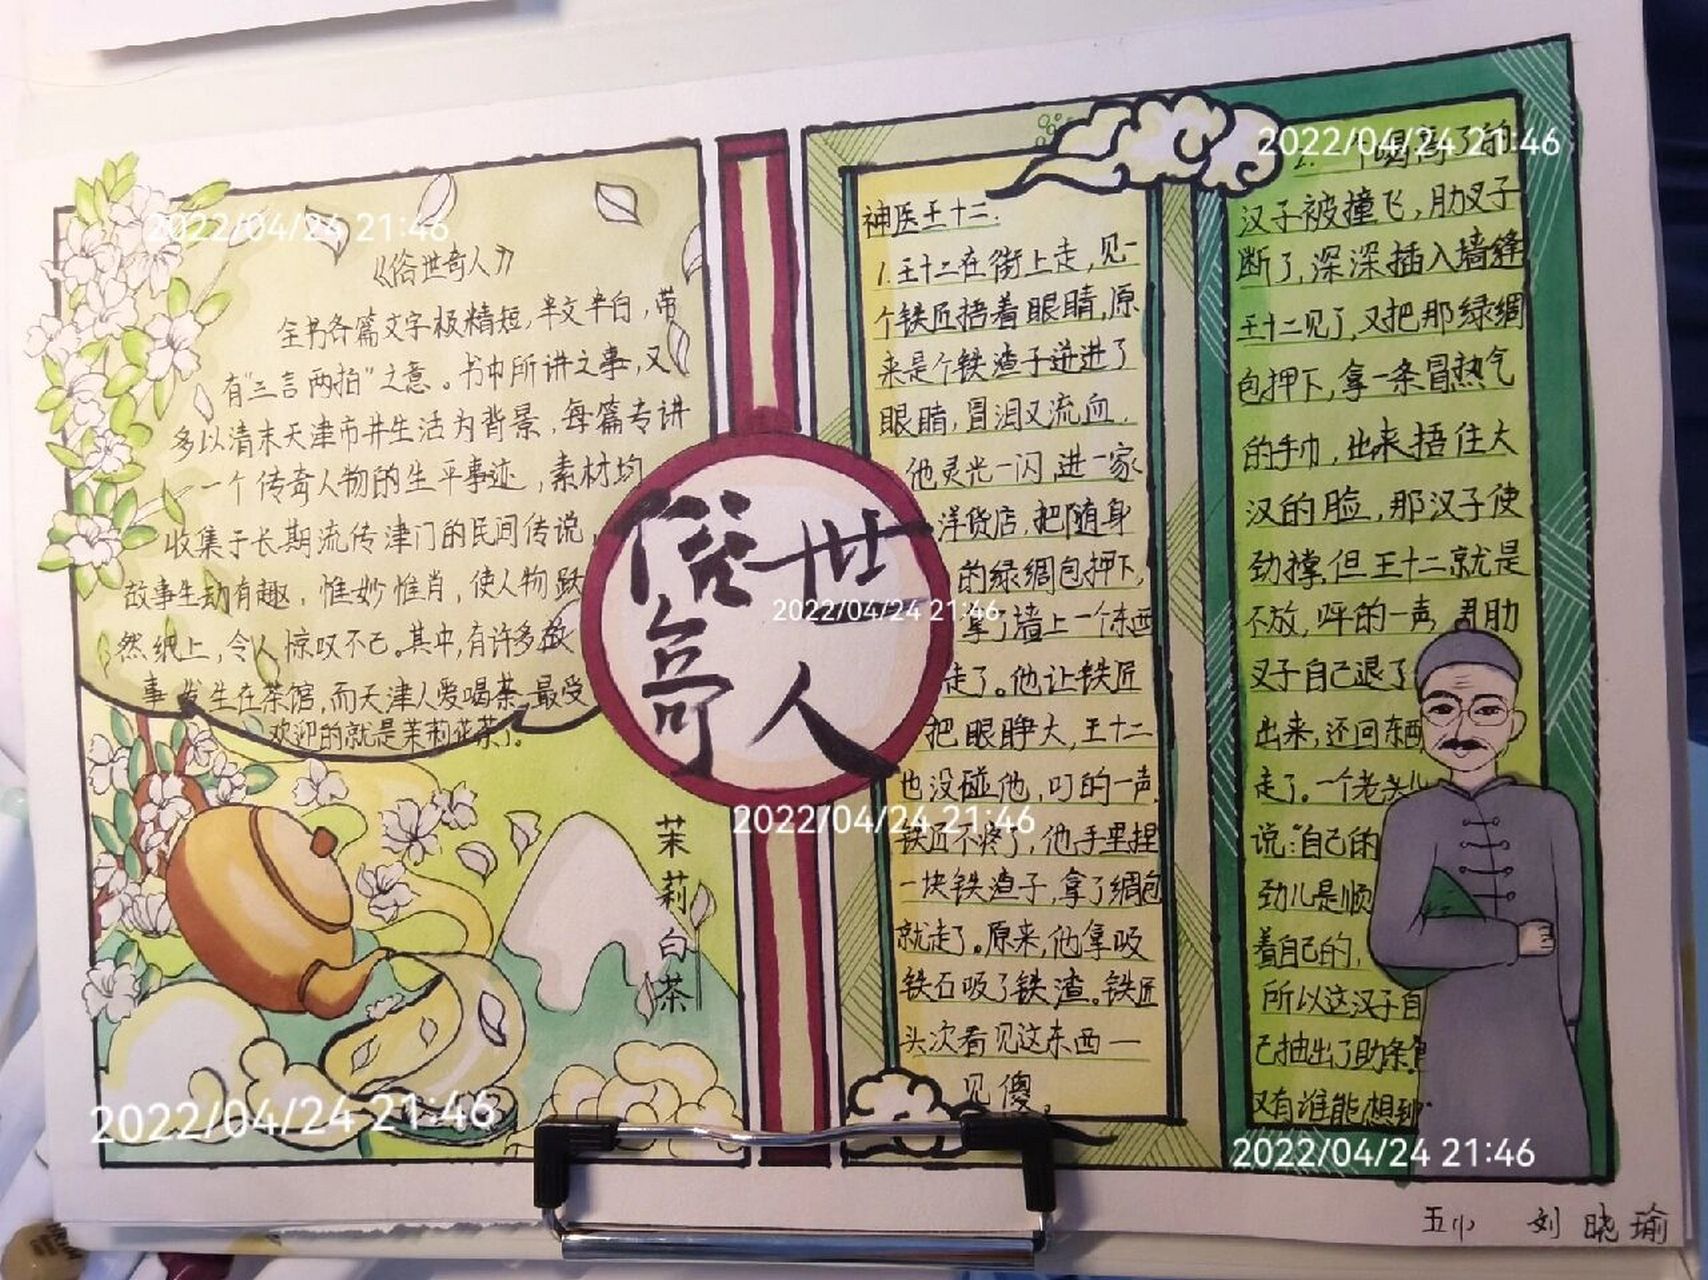 《俗世奇人》
全书各篇文字极精短,半文半白,带
有"三言两拍"之意。书中所讲之事,又
多以清末天津市井生活为背景,每篇专讲
一个传奇人物的生平事迹,素材均
收集于长期流传津门的民间传说,
故事生动有趣,惟妙惟肖,使人物跃
然纸上,令人惊叹不已。其中,有许多故
事发生在茶馆,而天津人爱喝茶,最受
欢迎的就是茉莉花茶了。
茉莉白茶
俗世
奇人
神医王十二:
1.王十二在街上走,见一
个铁匠捂着眼睛,原
来是个铁渣子迸进了
眼睛,冒泪又流血.
他灵光一闪,进一家
洋货店,把随身
的绿绸包押下,
拿了墙上一个东西
走了。他让铁匠
把眼睁大,王十二
也没碰他,叮的一声,
铁匠不疼了,他手里捏
一块铁渣子,拿了绸包
就走了。原来,他拿吸
铁石吸了铁渣。铁匠
头次看见这东西一
见傻。
2.一个喝高了的
汉子被撞飞,肋叉子
断了,深深插入墙缝
王十二见了,又把那绿绸
包押下,拿一条冒热气
的手巾,出来捂住大
汉的脸,那汉子使
劲撑,但王十二就是
不放,呼的一声,肋
叉子自己退了
出来,还回东西
走了。一个老头儿
说:"自己的
劲儿是顺
着自己的,
所以这汉子自
己抽出了肋条
又有谁能想到
五 刘晓瑜
2022/04/24 21:46
2022/04/24 21:46
2022/04/24 21:46
2022/04/24 21:46
2022/04/24 21:46
2022/04/24 21:46